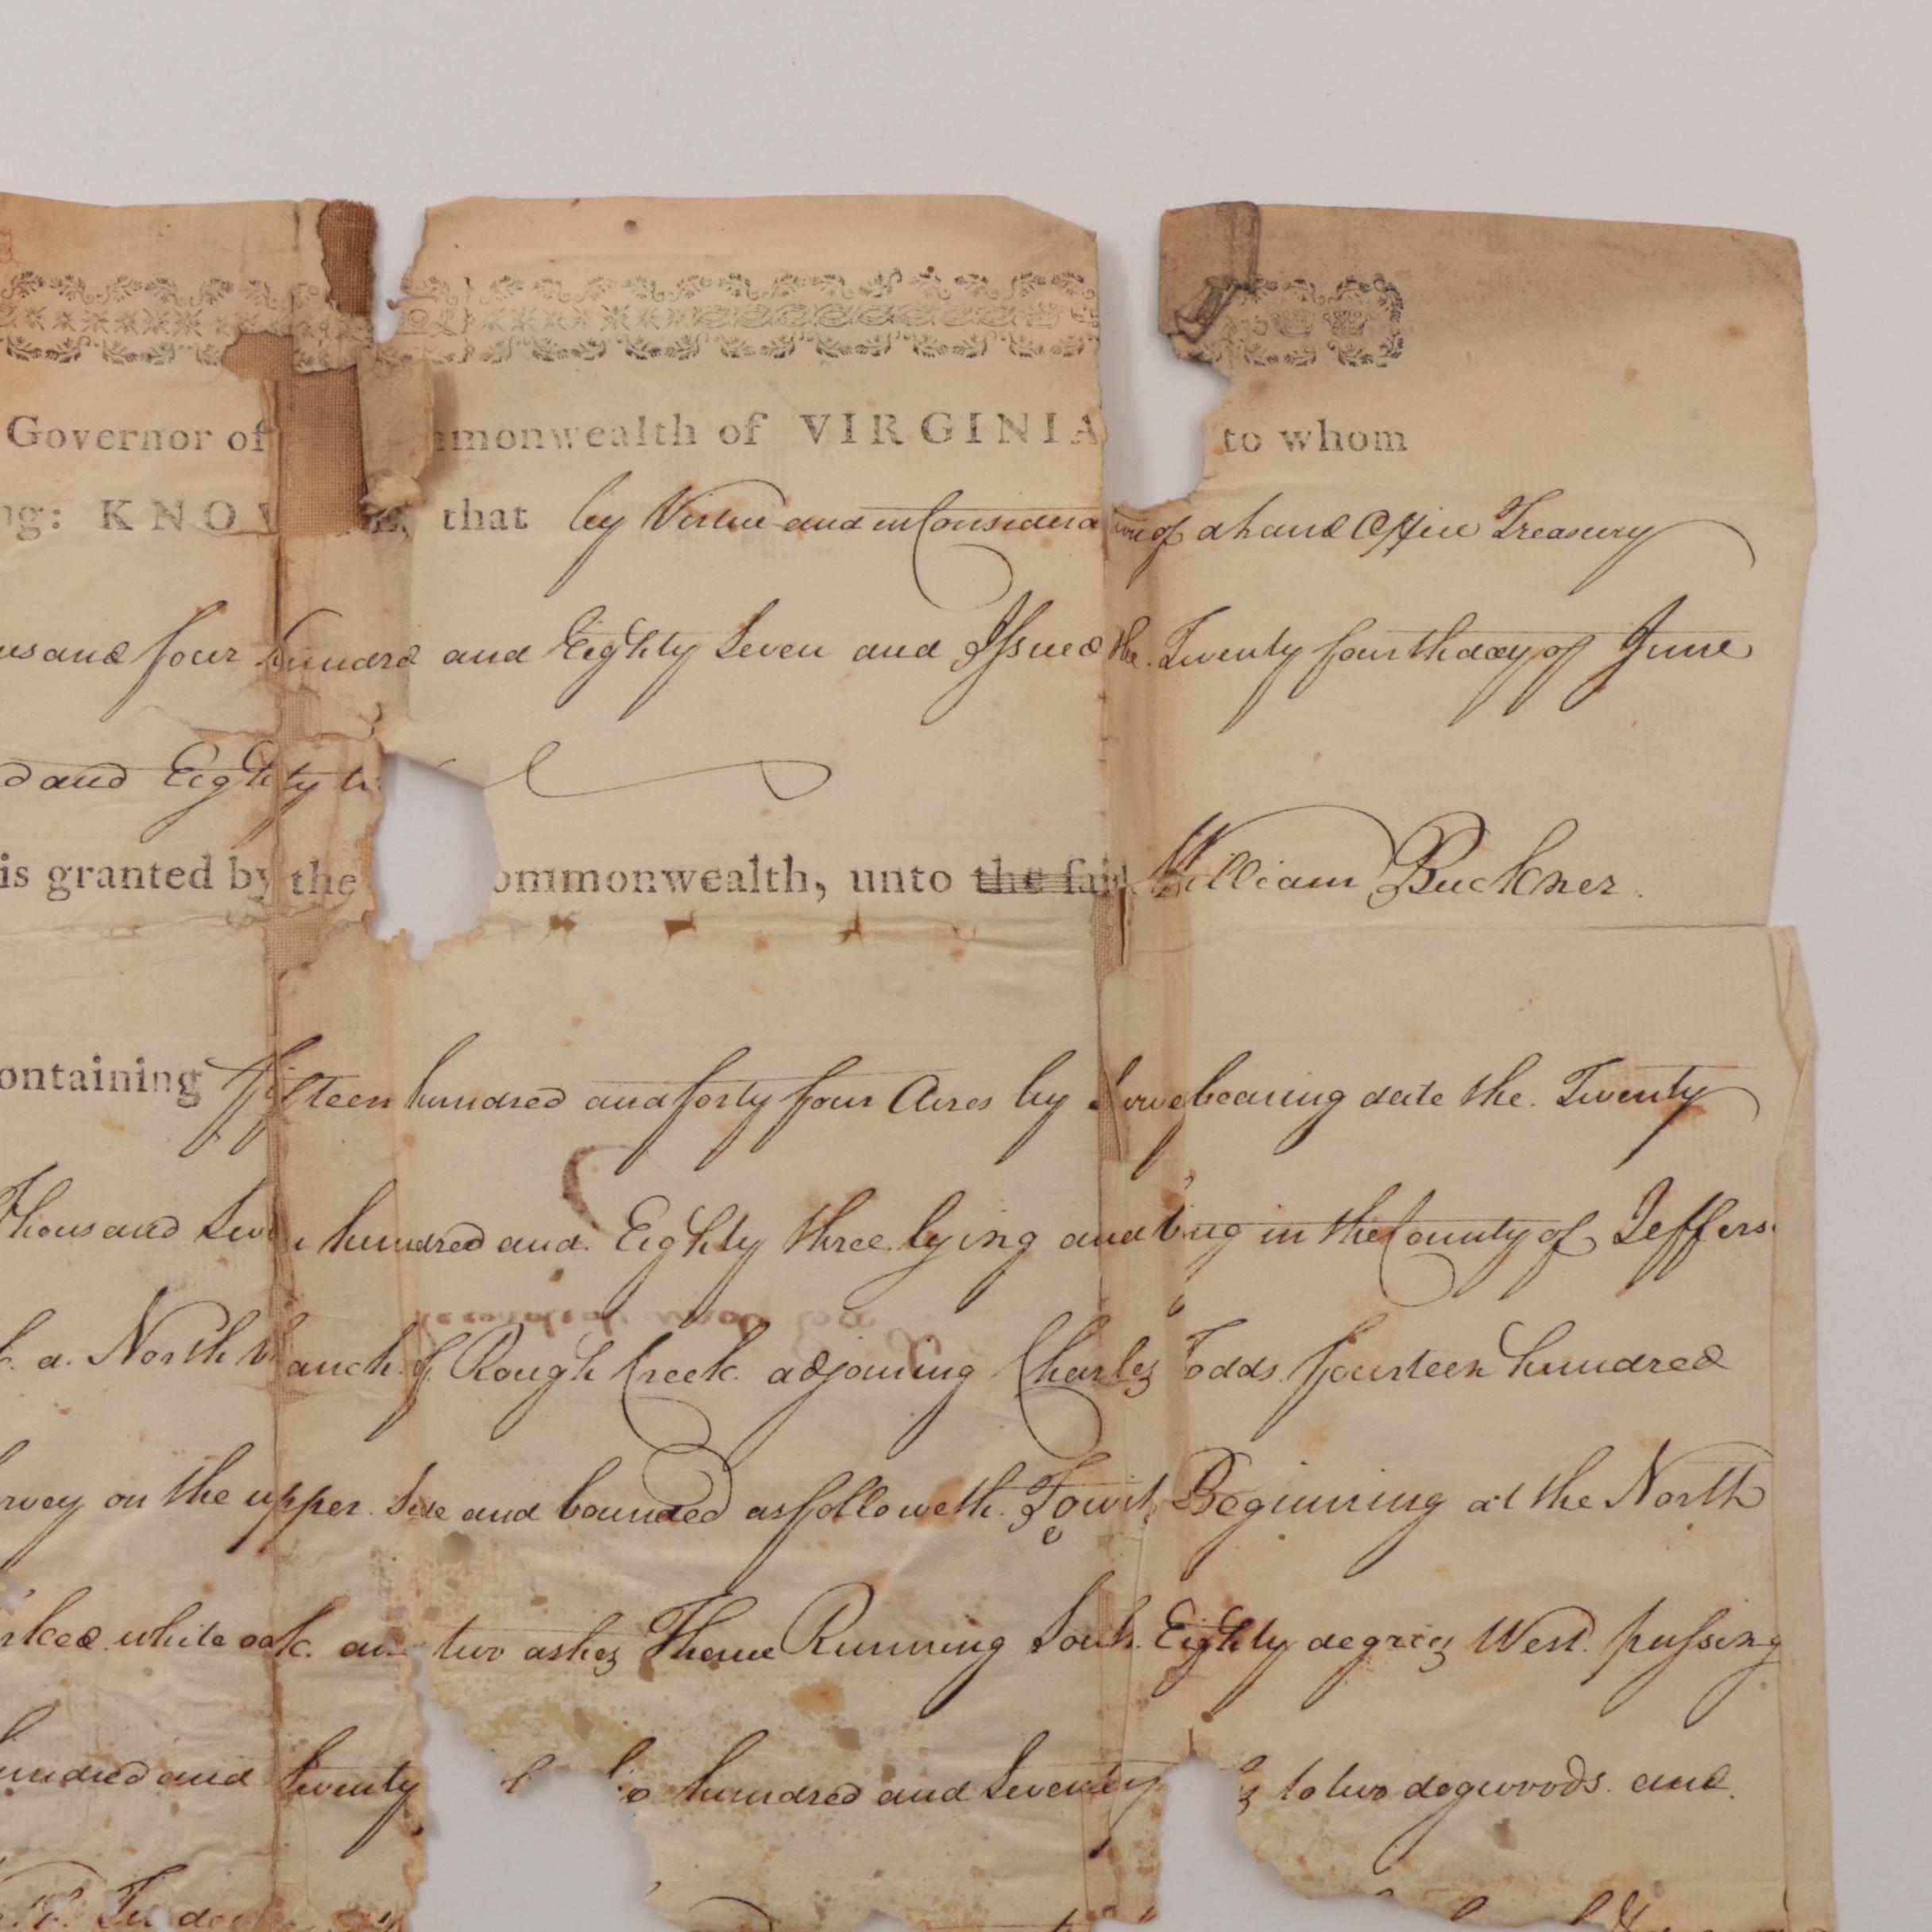 Governor of mmonwealth of VIRGINIA to whom
ng: KNO that by Virtue and in Consideration of a Land Office Treasury
usand four hundred and Eighty Seven and Issued the Twenty fourth day of June
d and Eighty t
is granted by the ommonwealth, unto the said William Buckner
ontaining fifteen hundred and forty four Acres by Surve bearing date the Twenty
Thousand Seven hundred and Eighty three lying and being in the County of Jefferso
a North branch of Rough Creek adjoining Charles Todds fourteen hundred
rvey on the upper Side and bounded as followeth Towit, Beginning at the North
rked white oak and two ashes Thence Running South Eighty degrees West passing
undred and twenty hundred and Seventy to two dogwoods and